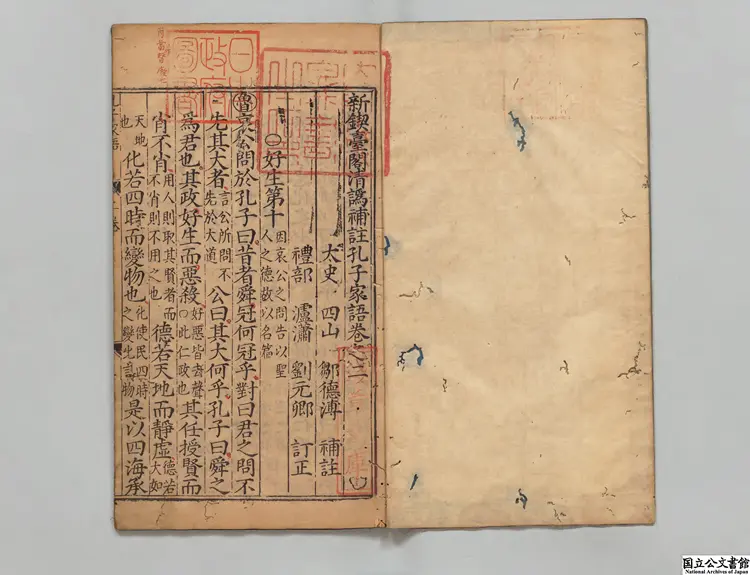 新鍥臺閣清譌補註孔子家語卷之二
太史 四山 鄒德溥 補註
禮部 瀘瀟 劉元卿 訂正
〇好生第十 因哀公之問告以聖人之德故以名篇
魯哀公問於孔子曰昔者舜冠何冠乎對曰君之問不
先其大者 言公所問不先於大道 公曰其大何乎孔子曰舜之
爲君也其政好生而惡殺 好惡皆去聲〇此仁政也 其任授賢而
肖不肖 用人則取其賢者而不肖則不用之也 德若天地而靜虛 德若大如
天地也 化若四時而變物也 化使民四時之變化言物 是以四海承
日本政府圖書
国立公文書館
National Archives of Japan